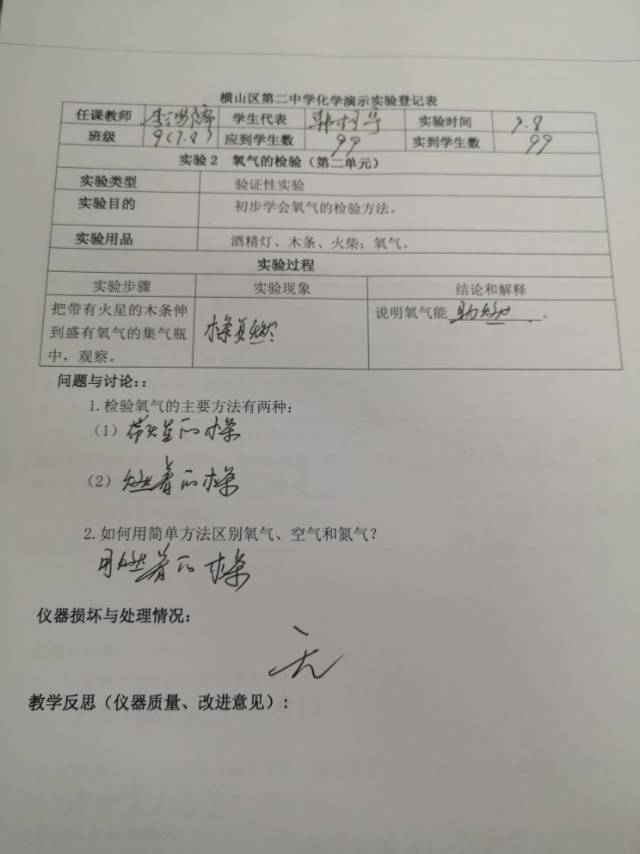 横山区第二中学化学演示实验登记表
任课教师 学生代表 实验时间 9.8
班级 9(7.8) 应到学生数 99 实到学生数 99
实验2 氧气的检验（第二单元）
实验类型 验证性实验
实验目的 初步学会氧气的检验方法。
实验用品 酒精灯、木条、火柴；氧气。
实验过程
实验步骤 实验现象 结论和解释
把带有火星的木条伸 说明氧气能 助燃 。
到盛有氧气的集气瓶 木条复燃
中，观察。
问题与讨论：:
1.检验氧气的主要方法有两种：
（1）带火星的木条
（2）燃着的木条
2.如何用简单方法区别氧气、空气和氮气？
用燃着的木条
仪器损坏与处理情况：
无
教学反思（仪器质量、改进意见）：